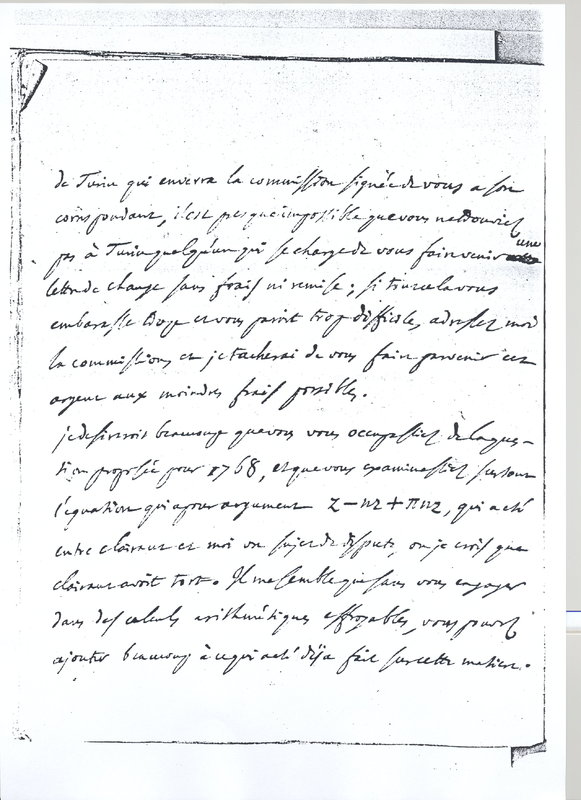 de Turin qui enverra la commission signée de vous a son
correspondant, il est presque impossible que vous ne trouviez
pas à Turin quelqu'un qui se charge de vous faire venir une
lettre de change sans frais ni remise ; si tout cela vous
embarasse et vous paroit trop difficile, adressez moi
la commission et je tacherai de vous faire parvenir cet
argent aux moindres frais possibles.
je desirerois beaucoup que vous vous occupassiez de la ques-
tion proposée pour 1768, et que vous examinassiez surtout
l'équation qui a pour argument z – nz + πnz, qui a eté
entre clairaut et moi un sujet de dispute, ou je crois que
clairaut avoit tort. Il me semble que sans vous engager
dans des calculs arithmétiques effroyables, vous pouvez
ajouter beaucoup à ce qui a eté déja fait sur cette matiere.